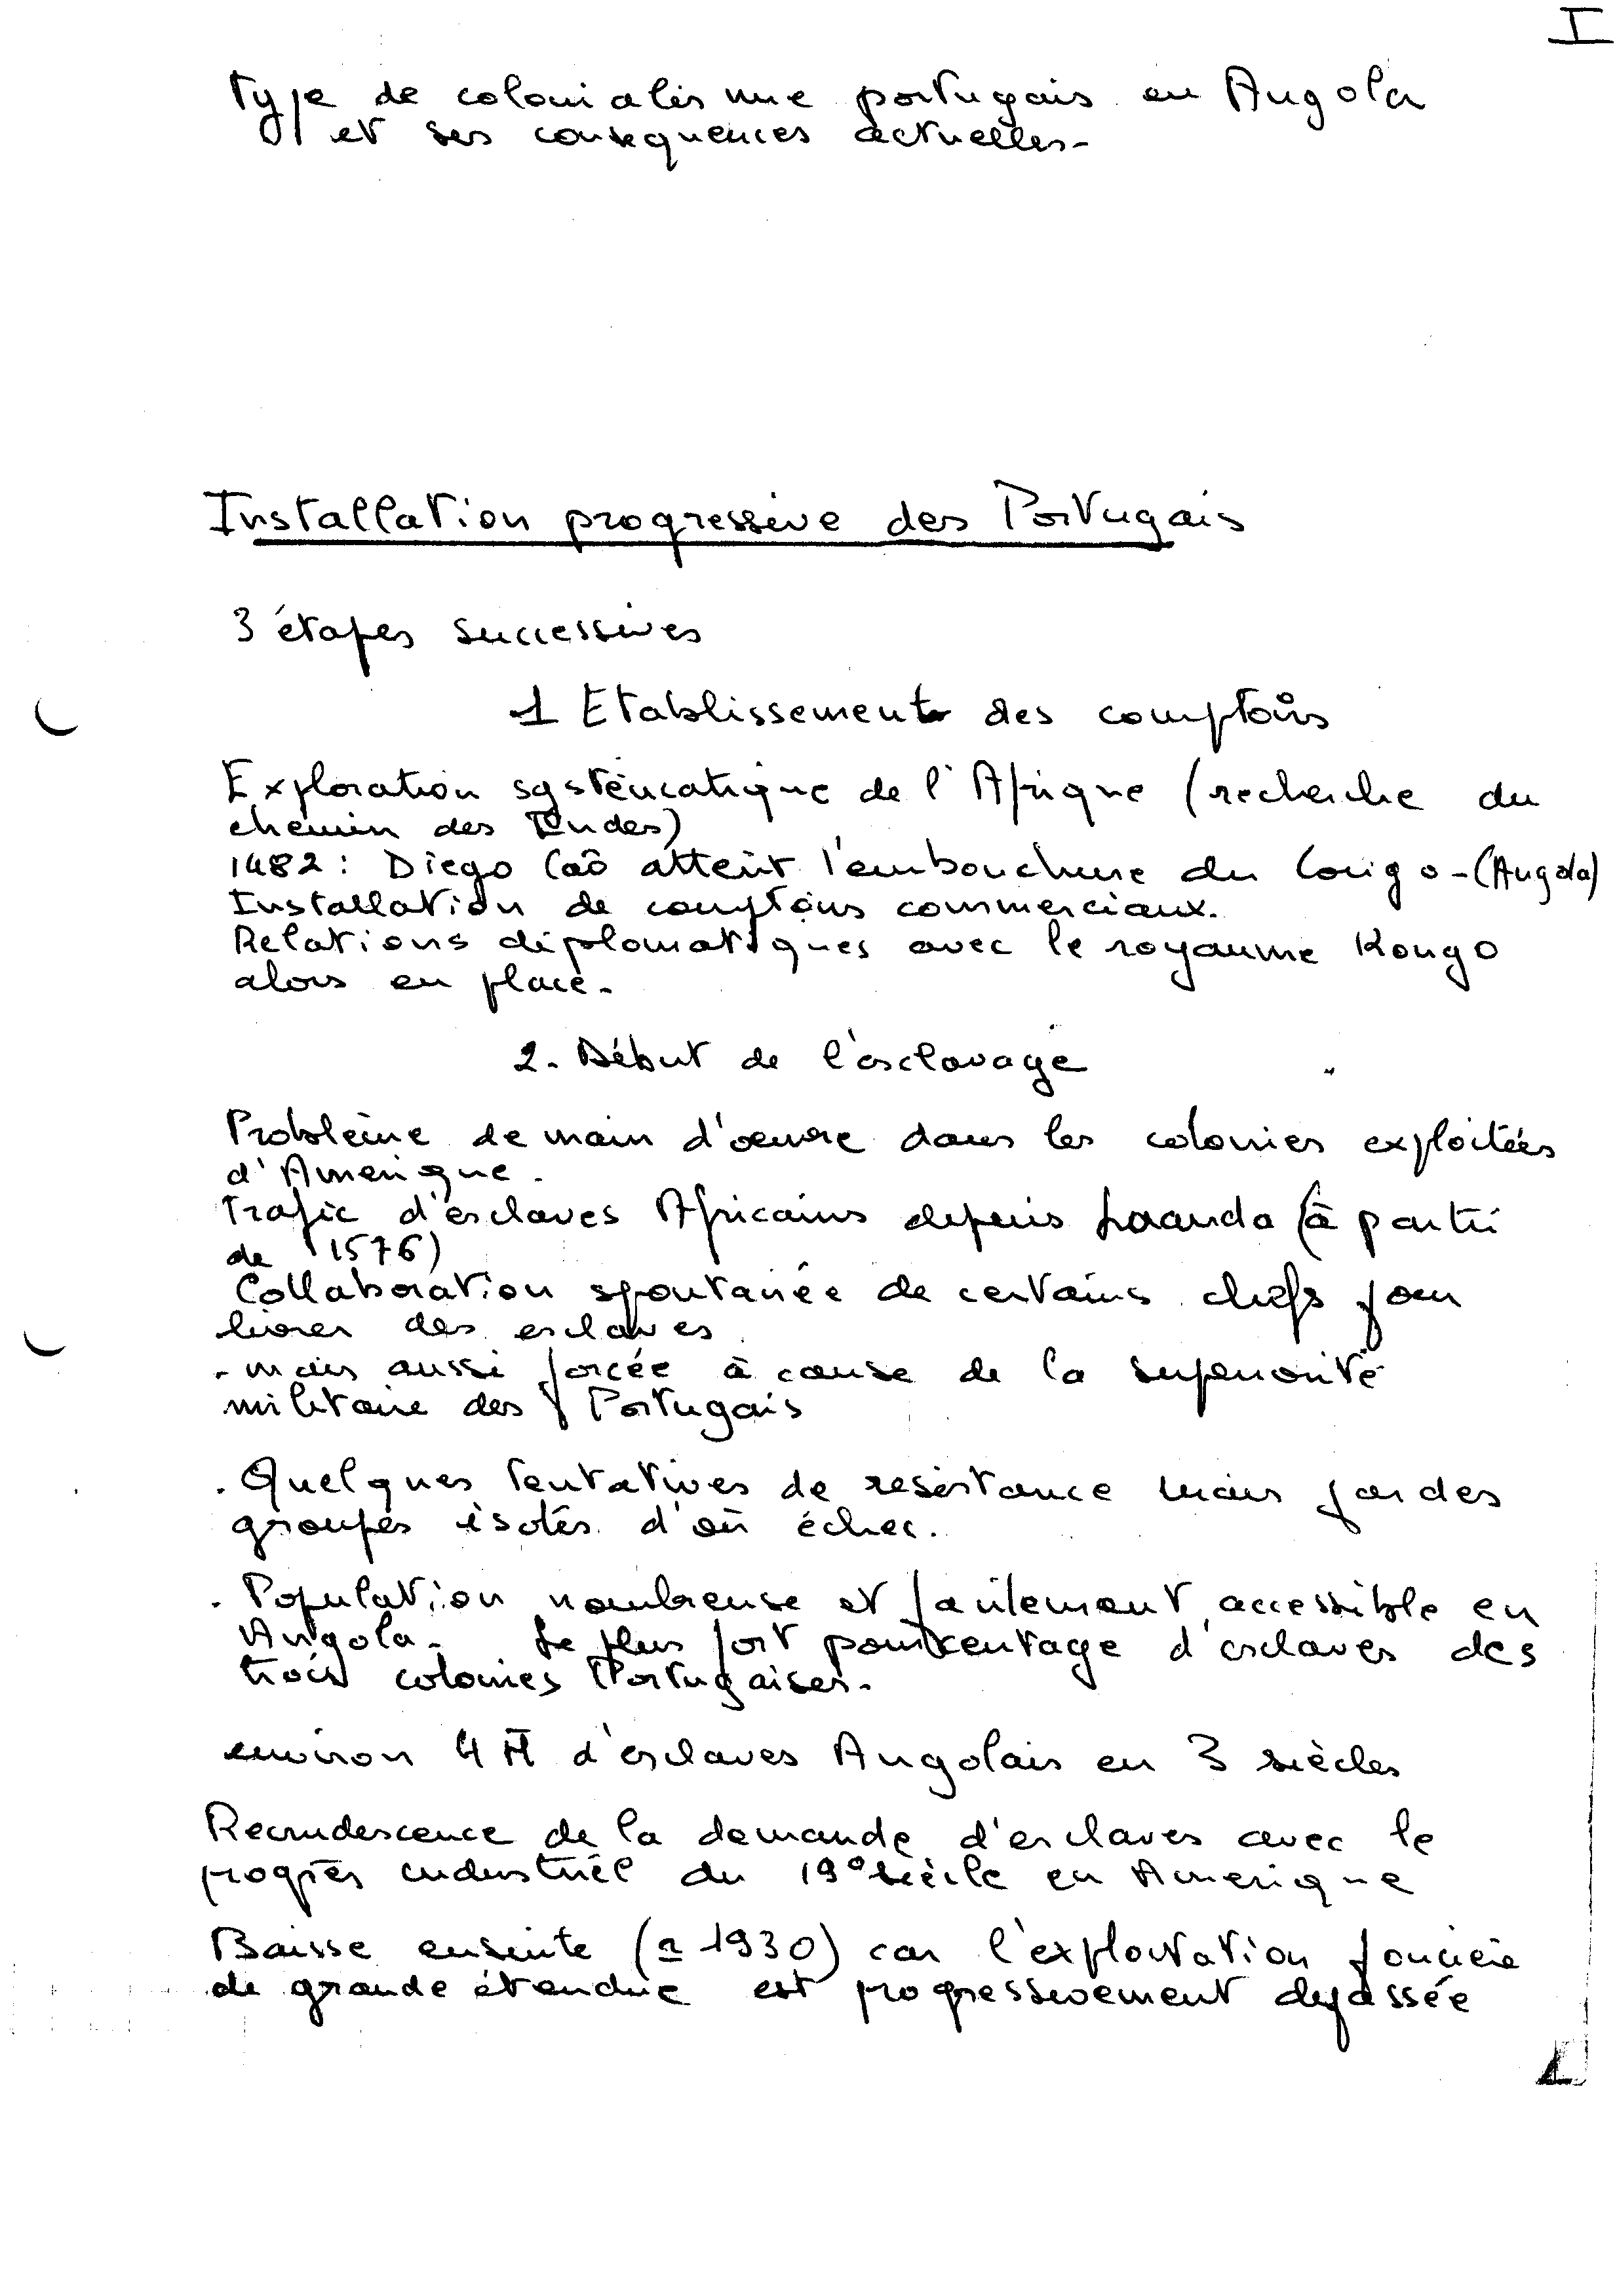 I
Type de colonialisme portugais en Angola
et ses consequences actuelles-
Installation progressive des Portugais
3 étapes successives
1 Etablissement des comptoirs
Exploration systématique de l'Afrique (recherche du
chemin des Indes)
1482: Diego Caô atteint l'embouchure du Congo-(Angola)
Installation de comptoirs commerciaux.
Relations diplomatiques avec le royaume Kongo
alors en place.
2. Début de l'esclavage
Problème de main d'oeuvre dans les colonies exploitées
d'Amerique.
Trafic d'esclaves Africains depuis Luanda (à partir
de 1576)
Collaboration spontanée de certains chefs pour
livrer des esclaves
- mais aussi forcée à cause de la superiorité
militaire des Portugais
. Quelques tentatives de resistance mais par des
groupes isolés d'où échec.
. Population nombreuse et facilement accessible en
Angola- Le plus fort pourcentage d'esclaves des
trois colonies Portugaises.
environ 4 M d'esclaves Angolais en 3 siècles
Recrudescence de la demande d'esclaves avec le
progrès industriel du 19° siècle en Amerique
Baisse ensuite (≃ 1930) car l'exploitation foncière
de grande étendue est progressivement depassée